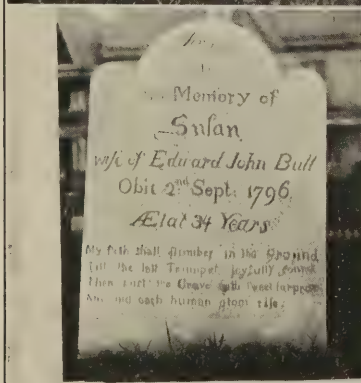 Memory of
Susan
wife of Edward John Bull
Obit 2nd Sept. 1796
Ætat 34 Years
My flesh shall slumber in the Ground
Till the last Trumpet joyfully sounds
Then the Grave with surprise
And each human atom rise.